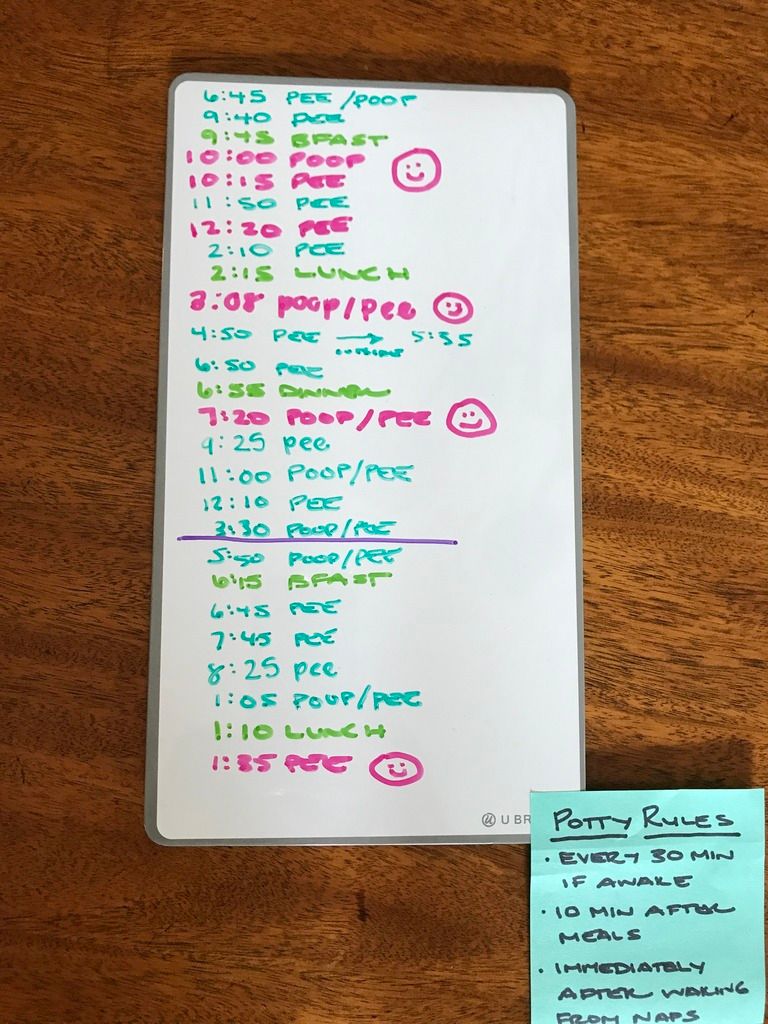 6:45 PEE/POOP
9:40 PEE
9:45 BFAST
10:00 POOP
10:15 PEE
11:50 PEE
12:20 PEE
2:10 PEE
2:15 LUNCH
3:08 POOP/PEE
4:50 PEE → 5:35
OUTSIDE
6:50 PEE
6:55 DINNER
7:20 POOP/PEE
9:25 pee
11:00 POOP/PEE
12:10 PEE
3:30 POOP/PEE
5:50 POOP/PEE
6:15 BFAST
6:45 PEE
7:45 PEE
8:25 pee
1:05 POOP/PEE
1:10 LUNCH
1:35 PEE
U BR
POTTY RULES
• EVERY 30 MIN
IF AWAKE
• 10 MIN AFTER
MEALS
• IMMEDIATELY
AFTER WAKING
FROM NAPS